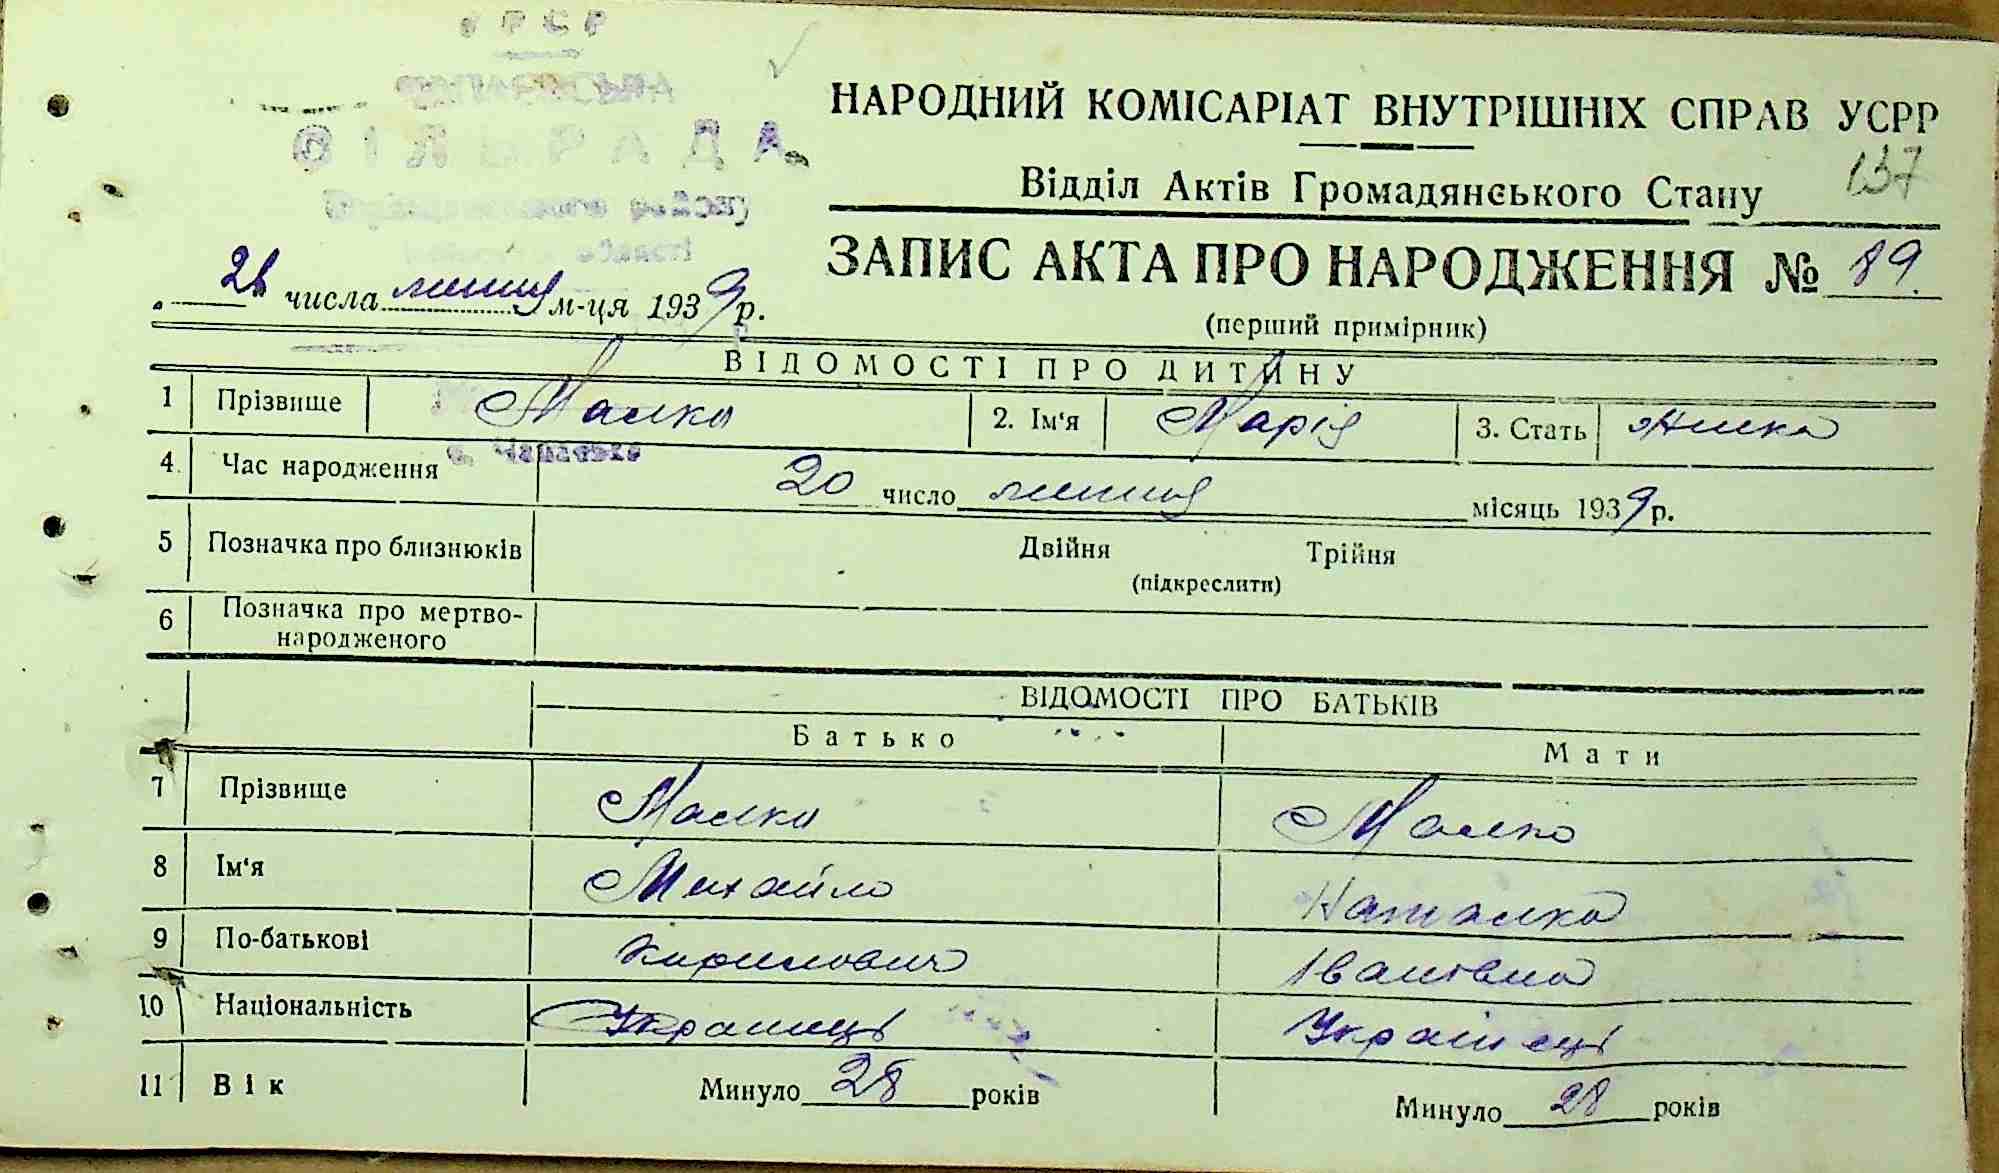 УРСР
СІЛЬРАДА
району
області
НАРОДНИЙ КОМІСАРІАТ ВНУТРІШНІХ СПРАВ УСРР
137
Відділ Актів Громадянського Стану
ЗАПИС АКТА ПРО НАРОДЖЕННЯ № 89.
числа липня м-ця 1939 р.
(перший примірник)
ВІДОМОСТІ ПРО ДИТИНУ
1 Прізвище Малко 2. Ім‘я Марія 3. Стать
4. Час народження 20 число липня місяць 1939 р.
5 Позначка про близнюків Двійня Трійня
(підкреслити)
6 Позначка про мертво-
народженого
ВІДОМОСТІ ПРО БАТЬКІВ
Батько Мати
7 Прізвище Малко Малко
8 Ім‘я Михайло Наталка
9 По-батькові Кирилович Іванівна
10 Національність Українці Українці
11 Вік Минуло 28 років Минуло 28 років